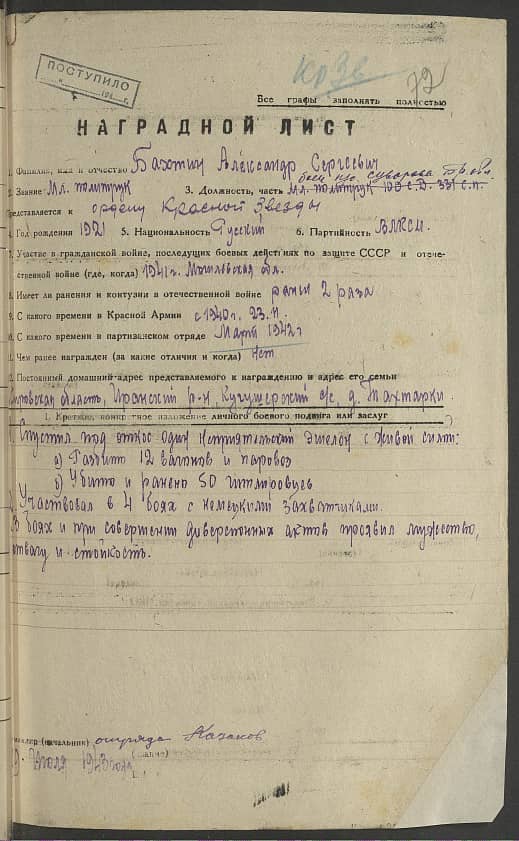 ПОСТУПИЛО
КрЗв
72
Все графы заполнять полностью
НАГРАДНОЙ ЛИСТ
1. Фамилия, имя и отчество Бахтин Александр Сергеевич
боец суворова
2. Звание Мл. политрук 3. Должность, часть Мл. политрук С.Д. 331 С.П.
Представляется к ордену Красной Звезды
4. Год рождения 1921 5. Национальность Русский 6. Партийность ВЛКСМ.
7. Участие в гражданской войне, последущих боевых действиях по защите СССР и отече-
ственной войне (где, когда) 1941г. Могилевская обл.
8. Имеет ли ранения и контузии в отечественной войне ранен 2 раза
9. С какого времени в Красной Армии с 1940г. 23.
10. С какого времени в партизанском отряде Март 1942г
11. Чем ранее награжден (за какие отличия и когда) Нет
12. Постоянный домашний адрес представляемого к награждению и адрес его семьи
Кировская область, р-н, Кугушерский с/с, д. Махтарки.
1. Краткое, конкретное изложение личного боевого подвига или заслуг
Спустил под откос один неприятельский эшелон с живой силой:
а) Разбито 12 вагонов и паровоз
б) Убито и ранено 50 гитлеровцев
Участвовал в 4 боях с немецкими захватчиками.
В боях и при совершении диверсионных актов проявил мужество,
отвагу и стойкость.
Командир (начальник) отряда Казаков
(звание)
июля 1943 года